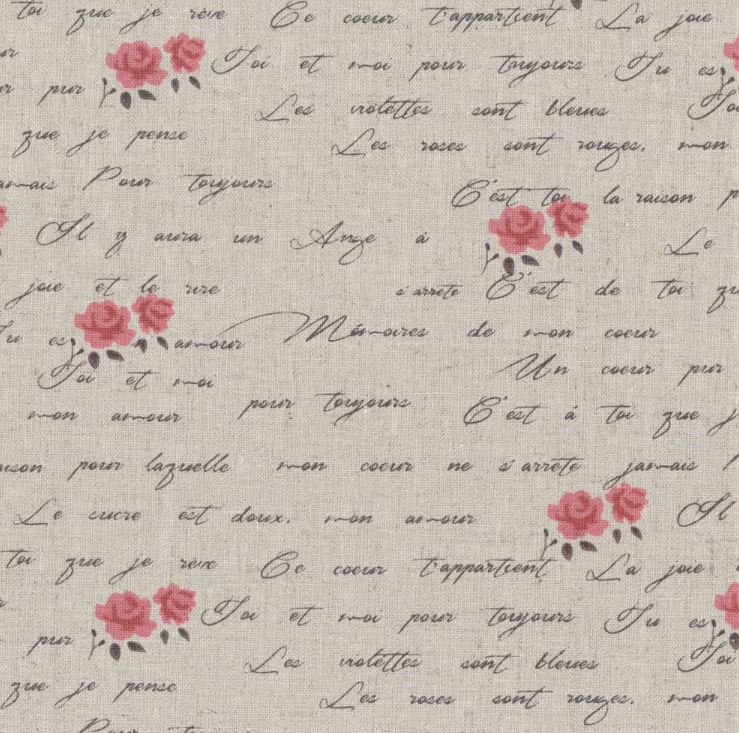 toi que je rêve Ce coeur t'appartient La joie
Toi et moi pour toujours Tu es
pur
Les violettes sont bleues Toi
que je pense Les roses sont rouges. mon
jamais Pour toujours
C'est toi la raison p
Il y aura un Ange à Le
joie et le rire s'arrête C'est de toi qu
Tu es amour Mémoires de mon coeur
Toi et moi Un coeur pur
mon amour pour toujours C'est à toi que j
aison pour laquelle mon coeur ne s'arrête jamais !
Le sucre est doux. mon amour Il
toi que je rêve Ce coeur t'appartient La joie
Toi et moi pour toujours Tu es
pur
Les violettes sont bleues Toi
que je pense Les roses sont rouges. mon
Pour toujours